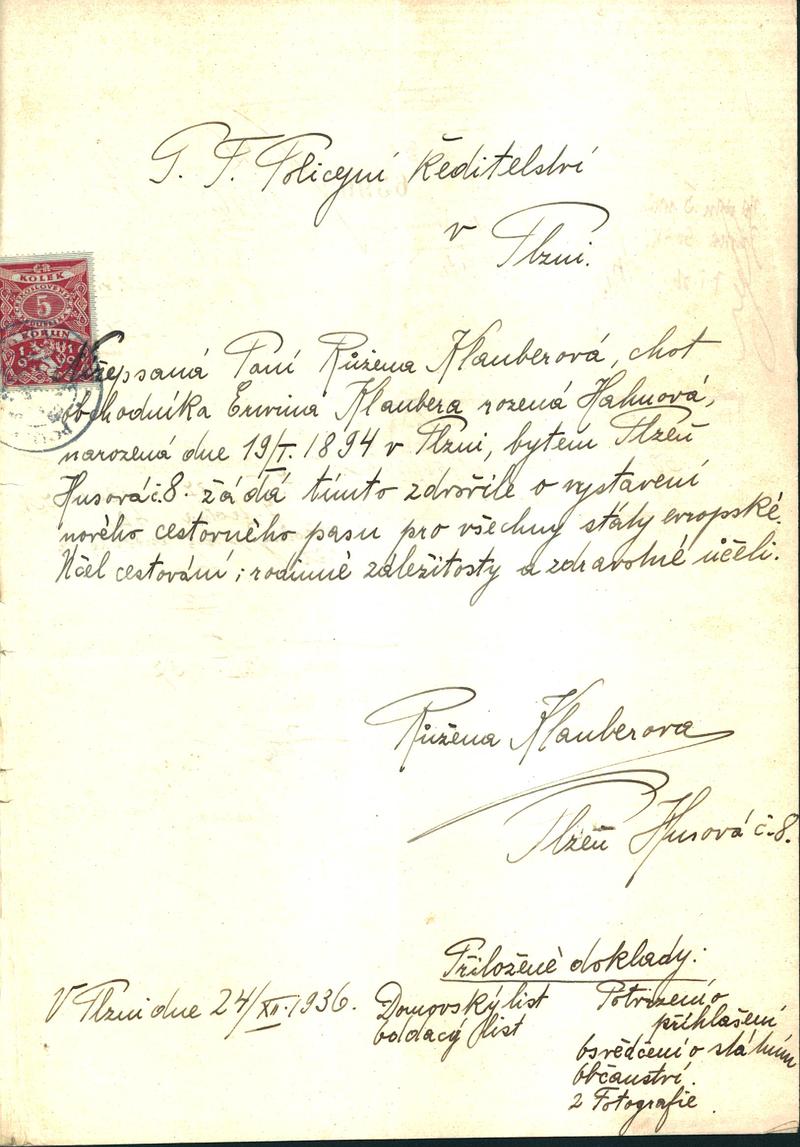 P. T. Policejní ředitelství
v Plzni.
KOLEK
5
KORUN
Nížepsaná Paní Růžena Klauberová, choť
obchodníka Erwina Klaubera rozená Hahnová,
narozená dne 19/I. 1894 v Plzni, bytem Plzeň
Husová č. 8. žádá tímto zdvořile o vystavení
nového cestovného pasu pro všechny státy evropské.
Účel cestování; rodinné záležitosty a zdravotné účeli.
Růžena Klauberova
Plzeň Husová č. 8.
V Plzni dne 24/XII. 1936.
Přiložené doklady:
Domovský list
oddací list
Potvrzení o
přihlašení
osvědčení o státním
občanství.
2 Fotografie.